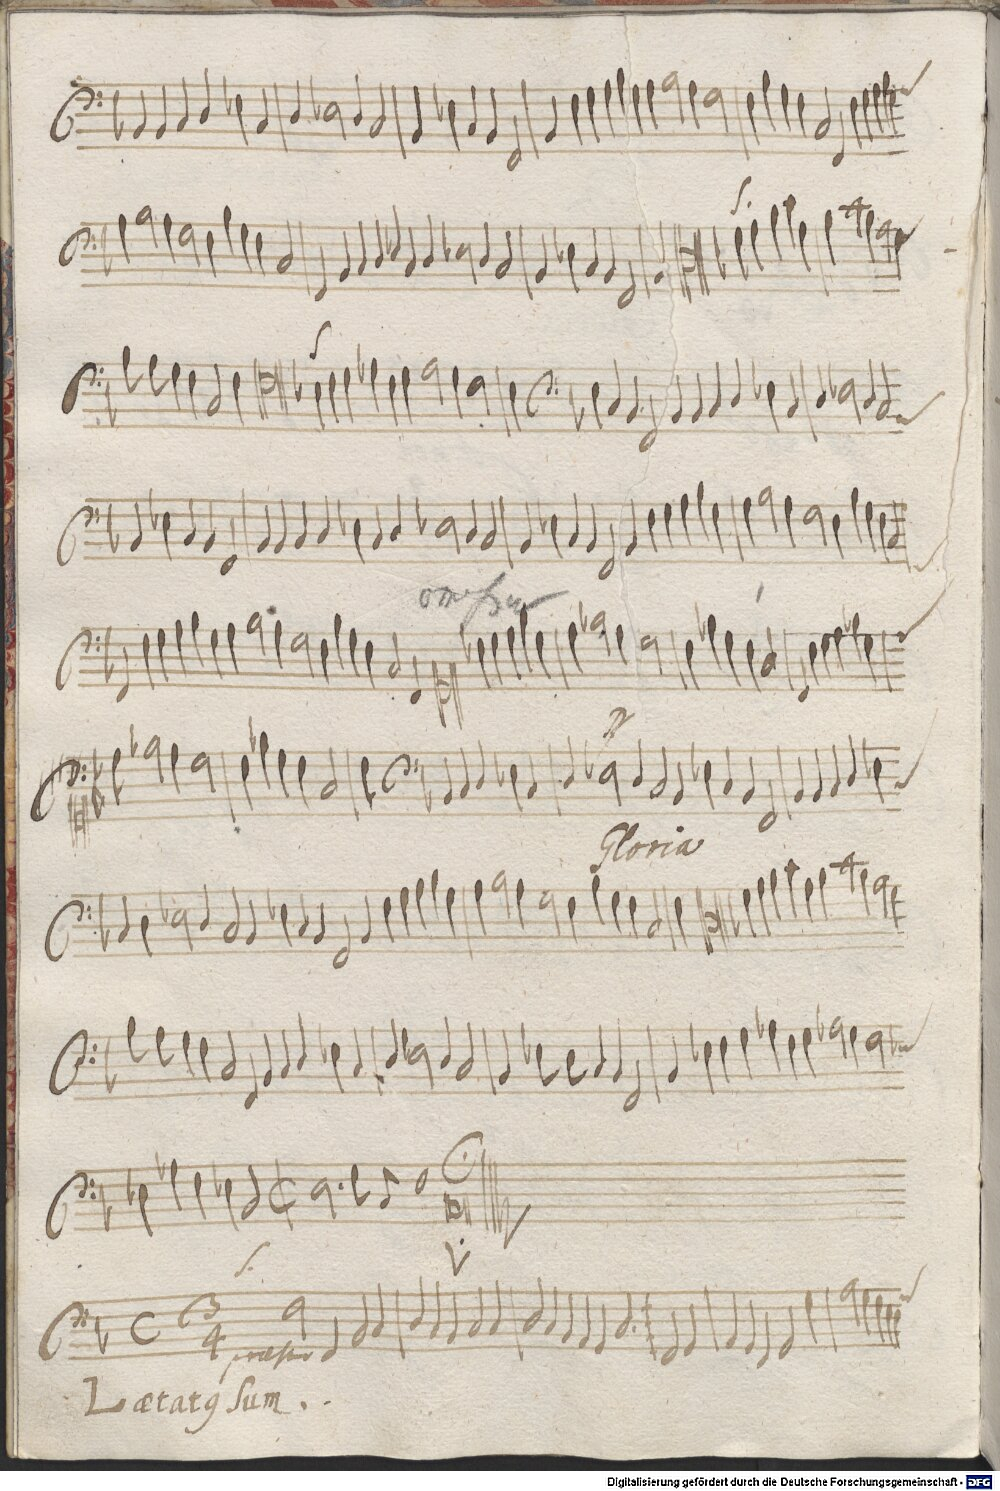 S.
S.
Gloria
V.
S.
C 3
4
Lætatg sum.
Digitalisierung gefördert durch die Deutsche Forschungsgemeinschaft - DFG